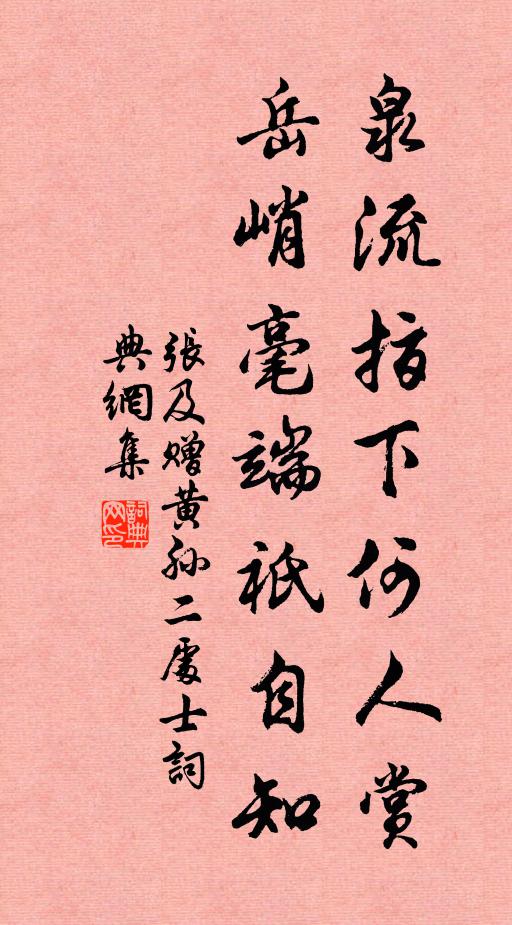 泉流指下何人賞
岳峭毫端祇自知
張及贈黄孙二處士詞
典網集
詞典
网印